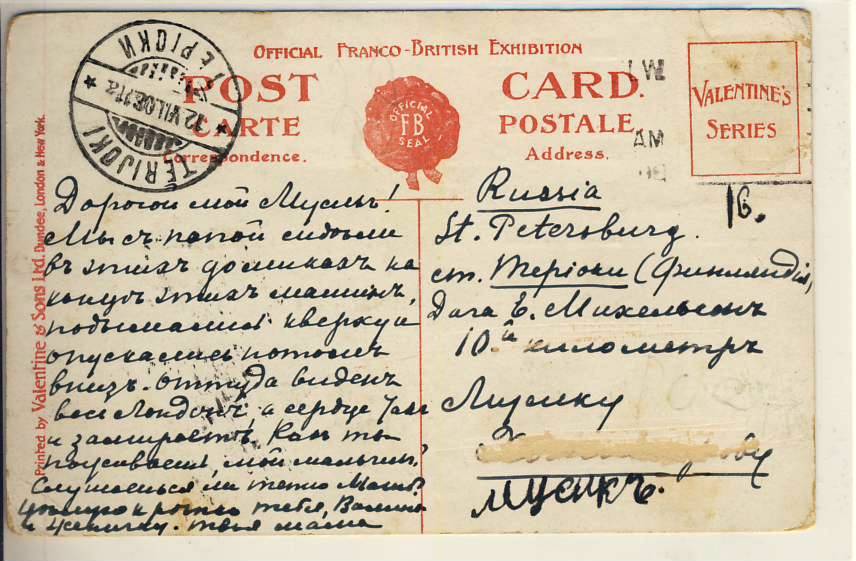 OFFICIAL FRANCO-BRITISH EXHIBITION
POST CARD.
CARTE POSTALE
Correspondence. Address.
OFFICIAL
FB
SEAL
VALENTINE'S
SERIES
TERIJOKI
12.VII.08
AM
Printed by Valentine & Sons Ltd. Dundee, London & New York.
Дорогой мой Мусикъ!
Мы съ папой сидѣли
въ этихъ домикахъ на
концѣ этихъ машинъ,
подымались кверху и
опускались потомъ
внизъ. Оттуда виденъ
весь Лондонъ, а сердце такъ
и замираетъ. Какъ ты
поживаешь, мой мальчикъ?
Слушаешься ли тетю
Цѣлую крѣпко тебя,
и твоя мама
Russia
16.
St. Petersburg.
ст. Теріоки (Финляндія)
Дача Е. Михельсонъ
10й километръ
Мусику
Мусикъ.